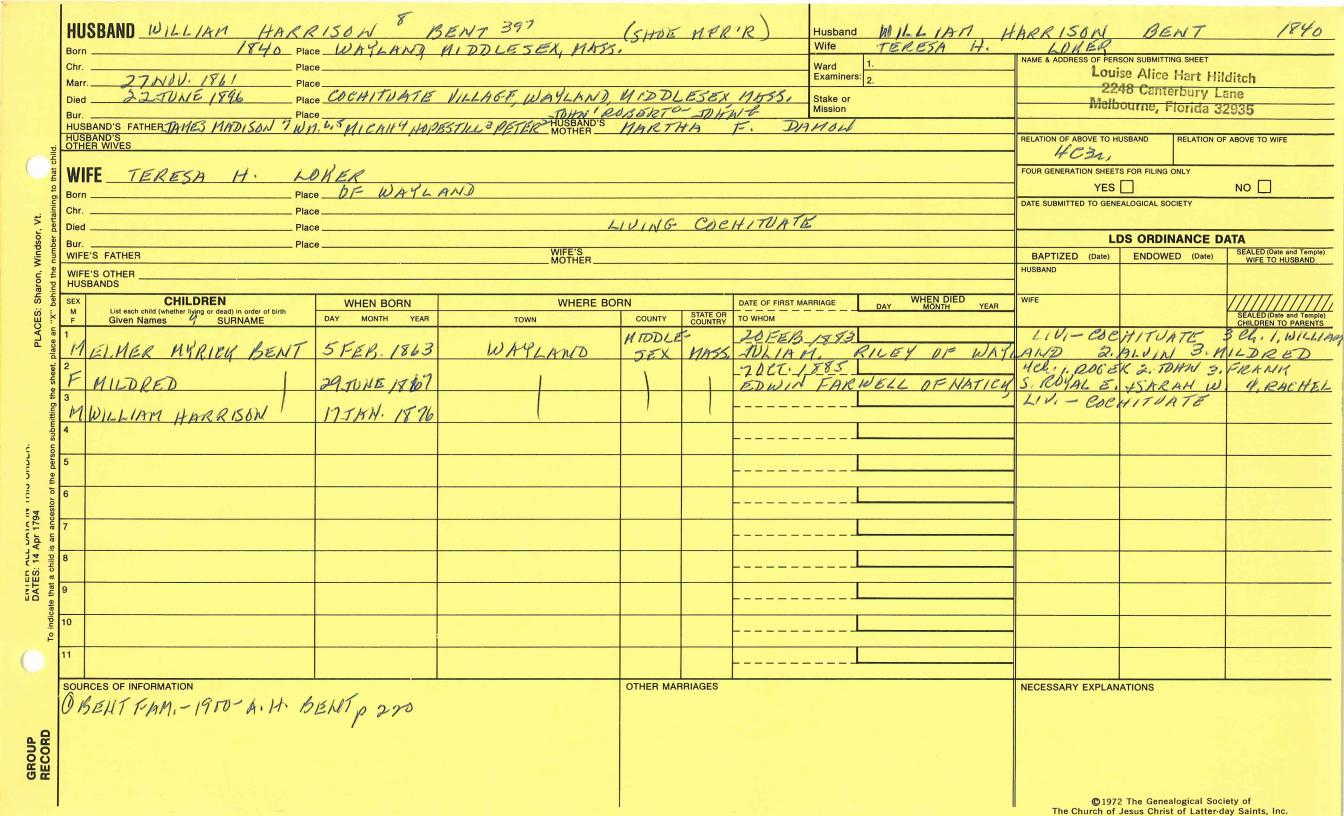 HUSBAND WILLIAM HARRISON 8 BENT 397 (SHOE MFR'R)
Born 1840 Place WAYLAND, MIDDLESEX, MASS.
Chr. Place
Marr. 27 NOV. 1861 Place
Died 22 JUNE 1896 Place COCHITUATE VILLAGE, WAYLAND, MIDDLESEX, MASS.
Bur. Place JOHN ROBERT JOHN
HUSBAND'S FATHER JAMES MADISON 7 WM. MICAH 4 HOPESTILL 3 PETER 2 HUSBAND'S MOTHER MARTHA F. DAMON
HUSBAND'S OTHER WIVES
WIFE TERESA H. LOKER
Born Place OF WAYLAND
Chr. Place
Died Place LIVING COCHITUATE
Bur. Place
WIFE'S FATHER WIFE'S MOTHER
WIFE'S OTHER HUSBANDS
Husband WILLIAM HARRISON BENT 1840
Wife TERESA H. LOKER
Ward Examiners: 1. 2.
Stake or Mission
NAME & ADDRESS OF PERSON SUBMITTING SHEET
Louise Alice Hart Hilditch
2248 Canterbury Lane
Melbourne, Florida 32935
RELATION OF ABOVE TO HUSBAND RELATION OF ABOVE TO WIFE
4C3r,
FOUR GENERATION SHEETS FOR FILING ONLY
YES NO
DATE SUBMITTED TO GENEALOGICAL SOCIETY
LDS ORDINANCE DATA
BAPTIZED (Date) ENDOWED (Date) SEALED (Date and Temple) WIFE TO HUSBAND
HUSBAND
WIFE
SEALED (Date and Temple) CHILDREN TO PARENTS
SEX M F CHILDREN WHEN BORN WHERE BORN DATE OF FIRST MARRIAGE WHEN DIED
List each child (whether living or dead) in order of birth
Given Names 9 SURNAME DAY MONTH YEAR TOWN COUNTY STATE OR COUNTRY TO WHOM DAY MONTH YEAR
1 MIDDLE- 20 FEB. 1893 LIV.- COCHITUATE 3 Ch. 1, WILLIAM
M ELMER MYRICK BENT 5 FEB. 1863 WAYLAND SEX MASS. JULIA M. RILEY OF WAYLAND 2. ALVIN 3. MILDRED
2 7 OCT. 1885 4 ch. 1. ROGER 2. JOHN 3. FRANK
F MILDRED 29 JUNE 1867 EDWIN FARWELL OF NATICK, S. ROYAL E. + SARAH W. 4. RACHEL
3 LIV. - COCHITUATE
M WILLIAM HARRISON 17 JAN. 1876
4
5
6
7
8
9
10
11
SOURCES OF INFORMATION OTHER MARRIAGES NECESSARY EXPLANATIONS
① BENT FAM.- 1900- A. H. BENT p 220
©1972 The Genealogical Society of
The Church of Jesus Christ of Latter-day Saints, Inc.
PLACES: Sharon, Windsor, Vt.
DATES: 14 Apr 1794
To indicate that a child is an ancestor of the person submitting the sheet, place an "X" behind the number pertaining to that child.
GROUP
RECORD